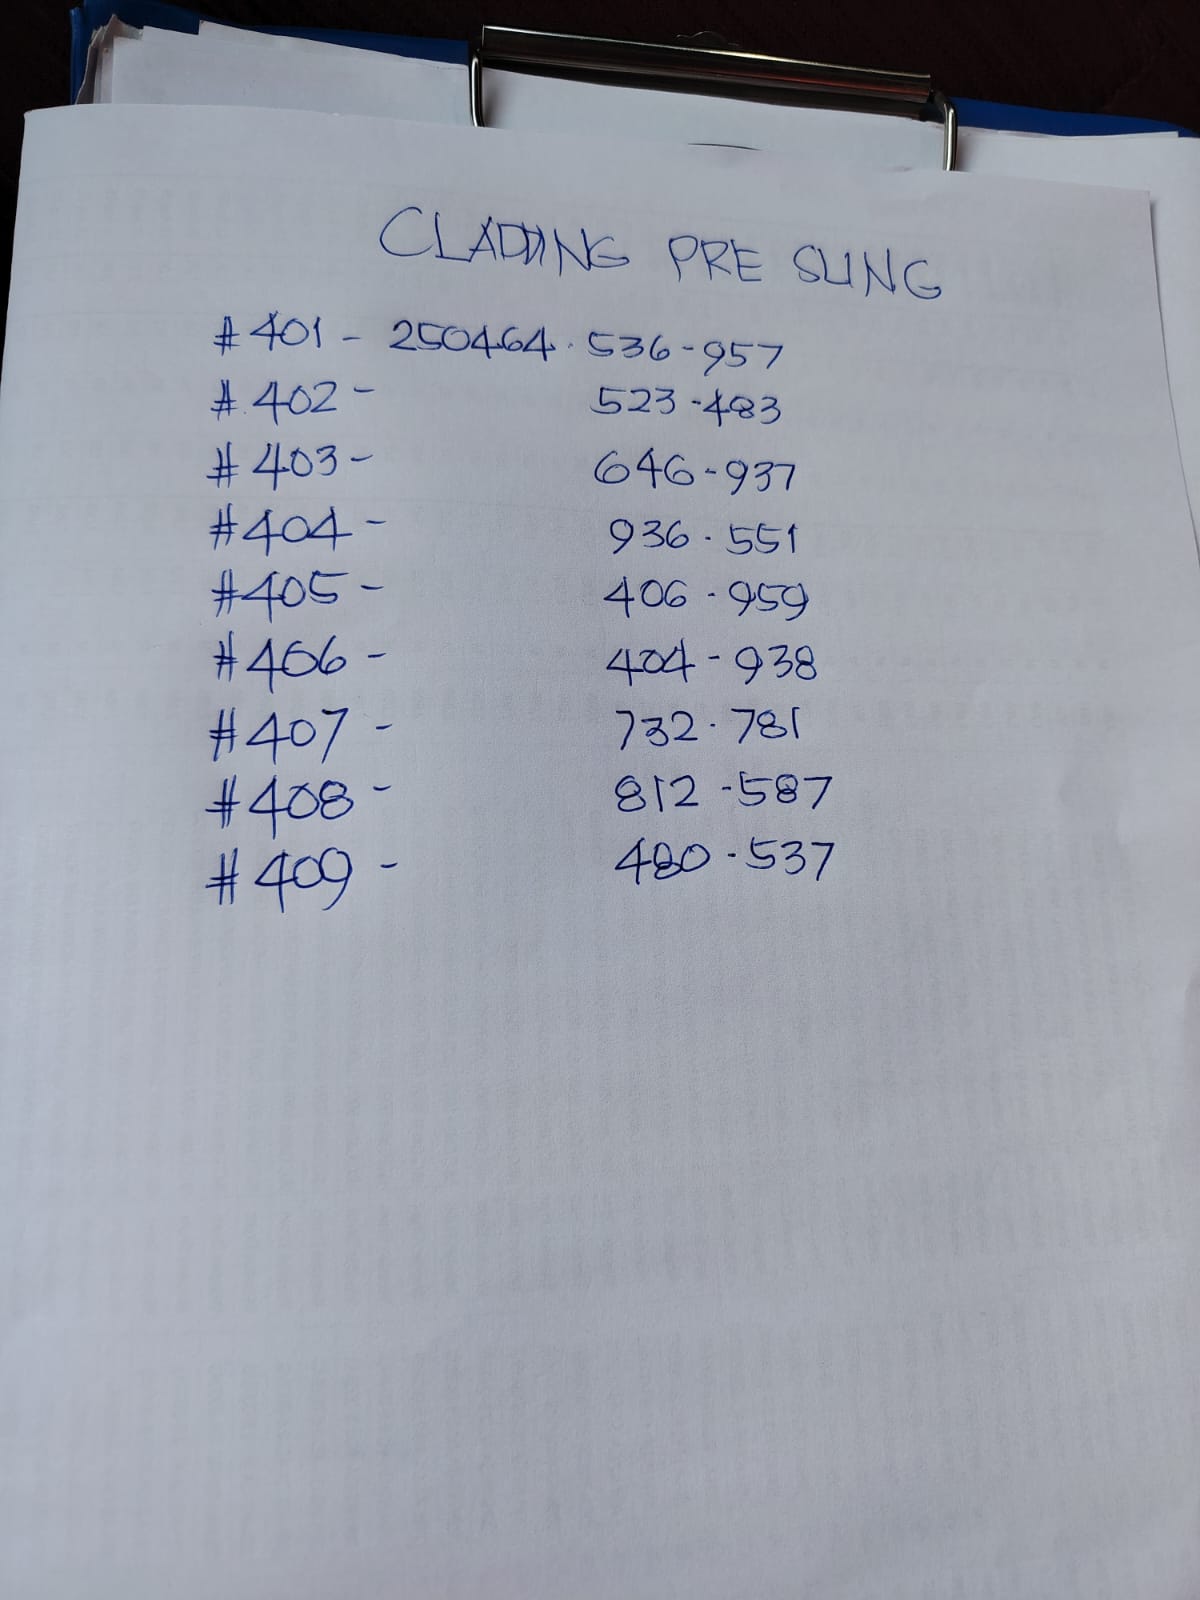 CLADDING PRE SLING
#401 - 250464 . 536-957
#402 - 523-483
#403 - 646-937
#404 - 936-551
#405 - 406-959
#406 - 404-938
#407 - 732-781
#408 - 812-587
#409 - 480-537